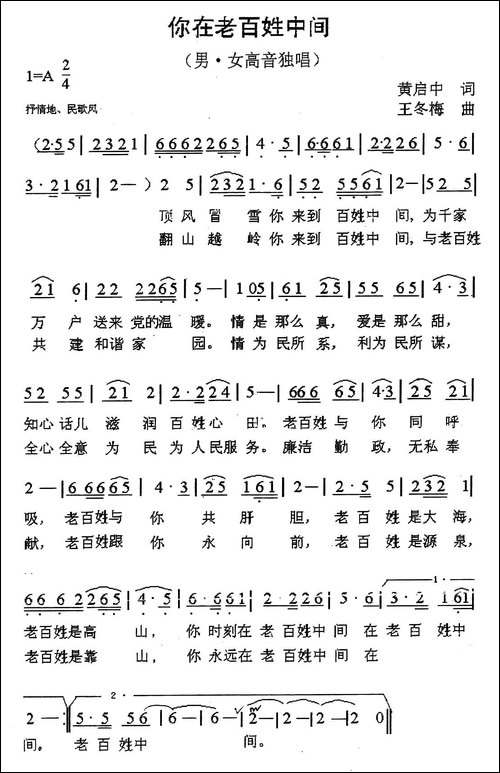 你在老百姓中间
（男·女高音独唱）
1=A 2/4
黄启中 词
抒情地、民歌风
王冬梅 曲
（2·5 5 | 2321 | 6 6 6 2 2 6 5 | 4·5 | 6·6 6 1 | 2·2 2 6 | 5·6 |
3·2 1 61 | 2—） 2 5 | 2321·6 | 5 2 5561 | 2— | 52 5 |
顶风冒雪你来到百姓中间，为千家
翻山越岭你来到百姓中间，与老百姓
21 6 | 22 2265 | 5— | 105 61 | 25 55 65 | 4·3 |
万户送来党的温暖。情是那么真，爱是那么甜，
共建和谐家园。情为民所系，利为民所谋，
52 55 | 21 2 | 2·2 24 | 5— | 666 65 | 4·3 25 |
知心话儿滋润百姓心田。老百姓与你同呼
全心全意为民为人民服务。廉洁勤政，无私奉
2— | 6 6665 | 4·3 | 25 161 | 2— | 2·5 5 | 232 1 |
吸，老百姓与你共肝胆，老百姓是大海，
献，老百姓跟你永向前，老百姓是源泉，
66 6 2265 | 4·5 | 6·6 61 | 2·2 226 | 5·6 | 1· 3·2 161 |
老百姓是高山，你时刻在老百姓中间在老百姓中
老百姓是靠山，你永远在老百姓中间在
2— :| 2· 5·5 56 | 6— | 6— | 2— | 2— | 2— | 2 0 ‖
间。老百姓中间。